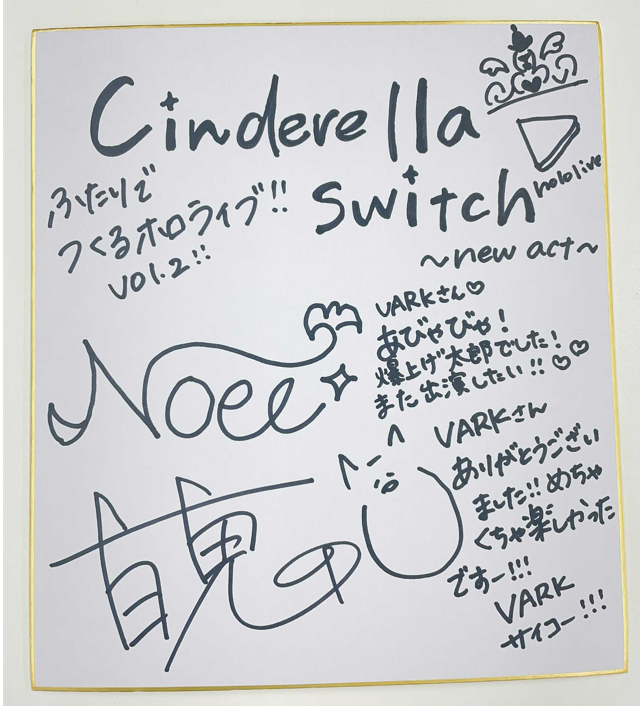 Cinderella
switch
~new act~
hololive
ふたりで
つくるホロライブ!!
VOL.2!!
Noel
VARKさん♡
あびゃびゃ!
爆上げ太郎でした!
また出演したい!!♡♡
VARKさん
ありがとうござい
ました!!めちゃ
くちゃ楽しかった
ですー!!!
VARK
サイコー!!!